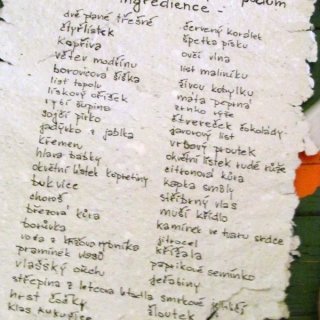 ingredience -
dvě plané třešně
čtyřlístek
kopřiva
větev modřínu
borovicová šiška
list topolu
lískový oříšek
rybí šupina
sojčí pírko
jadýrko z jablka
křemen
hlava babky
okvětní lístek kopretiny
bukvice
choroš
březová kůra
borůvka
voda z
pramínek vlasů
vlašský ořech
střepina z letcova
hrst čočky
klas kukuřice
červený korálek
špetka písku
ovčí vlna
list maliníku
živou kobylku
máta peprná
zrnko rýže
čtvereček čokolády
javorový list
vrbový proutek
okvětní lístek rudé růže
citronová kůra
kapka smůly
stříbrný vlas
muší křídlo
kamínek ve tvaru srdce
jitrocel
křížala
paprikové semínko
jeřabiny
smrkové jehličí
žloutek